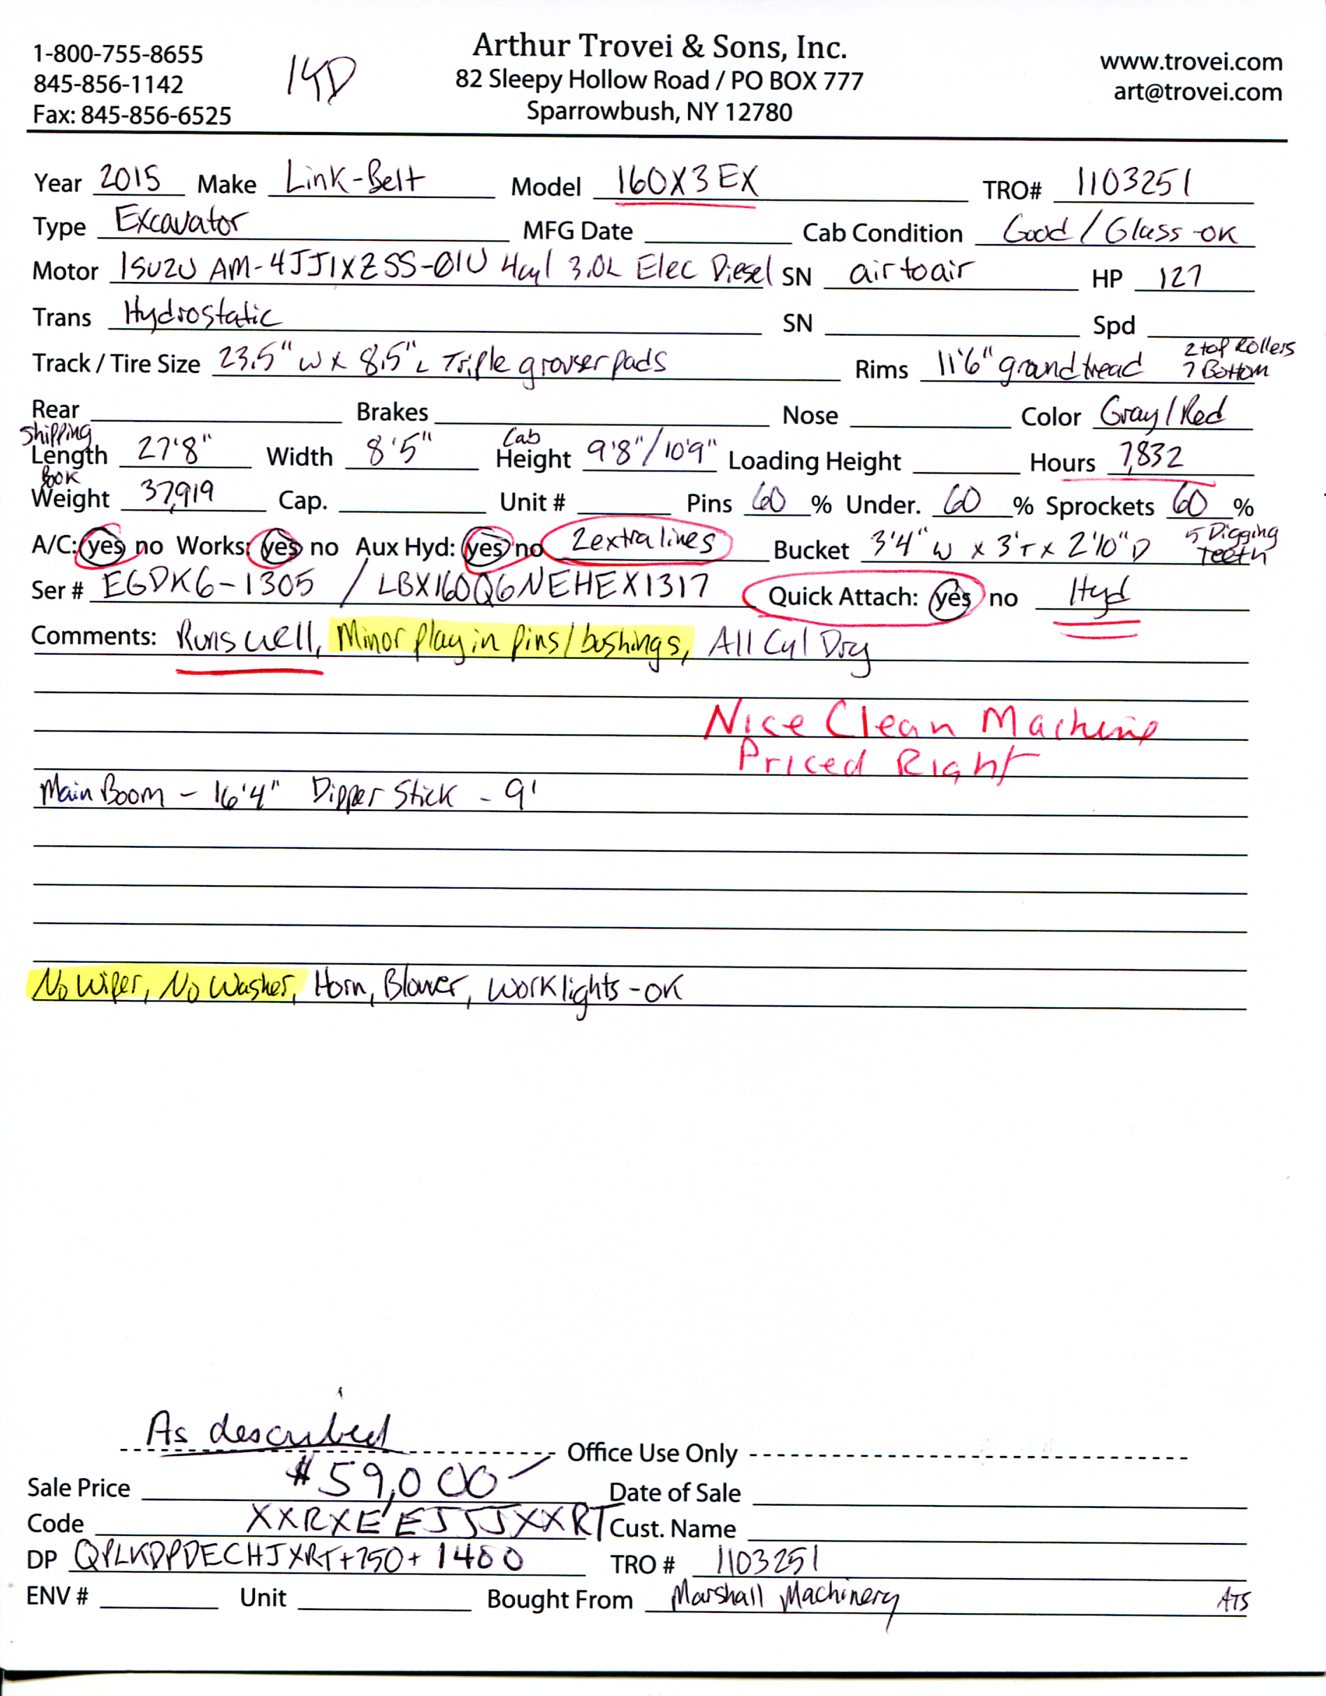 1-800-755-8655
845-856-1142
Fax: 845-856-6525
Arthur Trovei & Sons, Inc.
82 Sleepy Hollow Road / PO BOX 777
Sparrowbush, NY 12780
www.trovei.com
art@trovei.com
Year 2015 Make Link-Belt Model 160X3EX TRO# 1103251
Type Excavator MFG Date Cab Condition Good / Glass-ok
Motor Isuzu AM-4JJ1XZSS-01U 4cyl 3.0L Elec Diesel SN air to air HP 127
Trans Hydrostatic SN Spd
Track / Tire Size 23.5" W x 8.5" L Triple grouser pads Rims 11'6" ground tread 2 top Rollers
7 Bottom
Rear Brakes Nose Color Gray/Red
Shipping Length 27'8" Width 8'5" Cab Height 9'8"/10'9" Loading Height Hours 7,832
Book Weight 37,919 Cap. Unit # Pins 60 % Under. 60 % Sprockets 60 %
A/C: yes no Works: yes no Aux Hyd: yes no 2 extra lines Bucket 3'4" W x 3'T x 2'10" D 5 Digging Teeth
Ser # EGDK6-1305 / LBX160Q6NEHEX1317 Quick Attach: yes no Hyd
Comments: Runs well, Minor play in pins/bushings, All Cyl Dry
Nice Clean Machine
Priced Right
Main Boom - 16'4" Dipper Stick - 9'
No Wiper, No Washer, Horn, Blower, Worklights-ok
As described
Office Use Only
Sale Price $59,000 Date of Sale
Code XXRXE'EJJJXXRT Cust. Name
DP QPLKDPDECHJXRT+750+1400 TRO # 1103251
ENV # Unit Bought From Marshall Machinery ATS